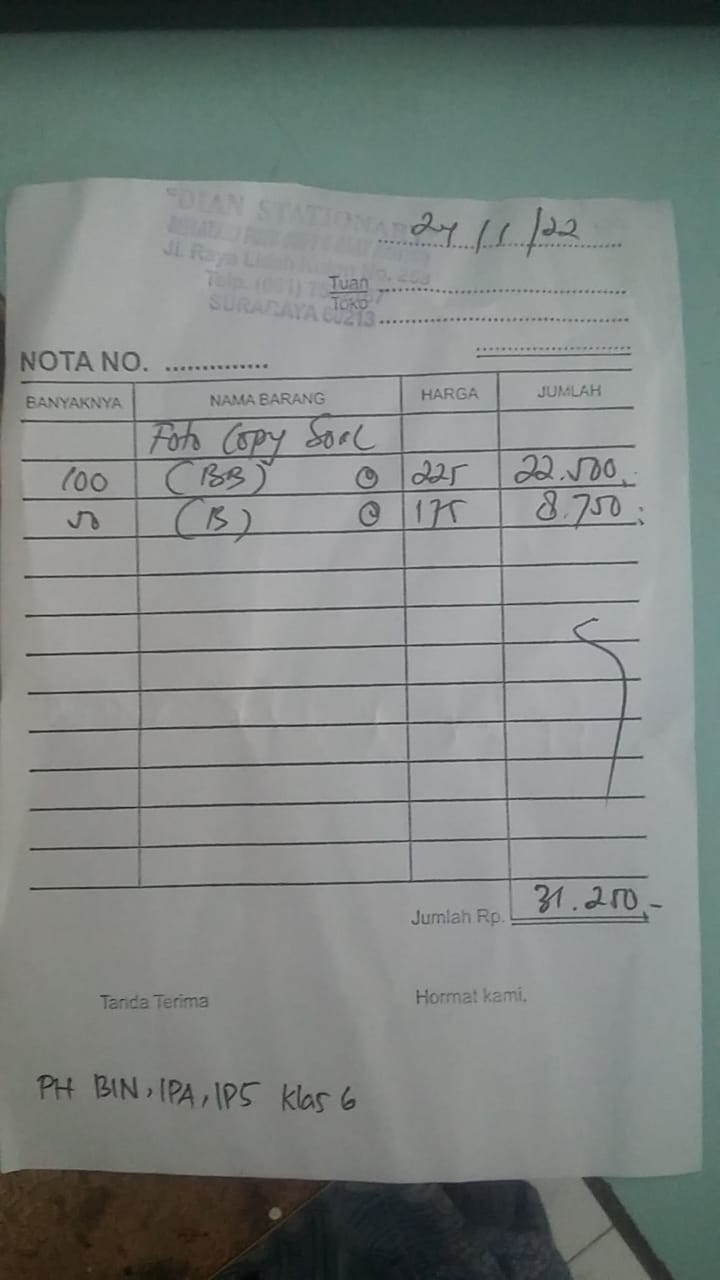 "DIAN STATIONARY
Jl. Raya Lidah
Telp. (031)
SURABAYA 60213
/11/22
Tuan
Toko
NOTA NO. ..............
BANYAKNYA NAMA BARANG HARGA JUMLAH
Foto Copy Soal
100 (BB) @ 225 22.500,-
50 (B) @ 175 8.750,-
Jumlah Rp. 31.250,-
Tanda Terima Hormat kami,
PH BIN, IPA, IPS Klas 6